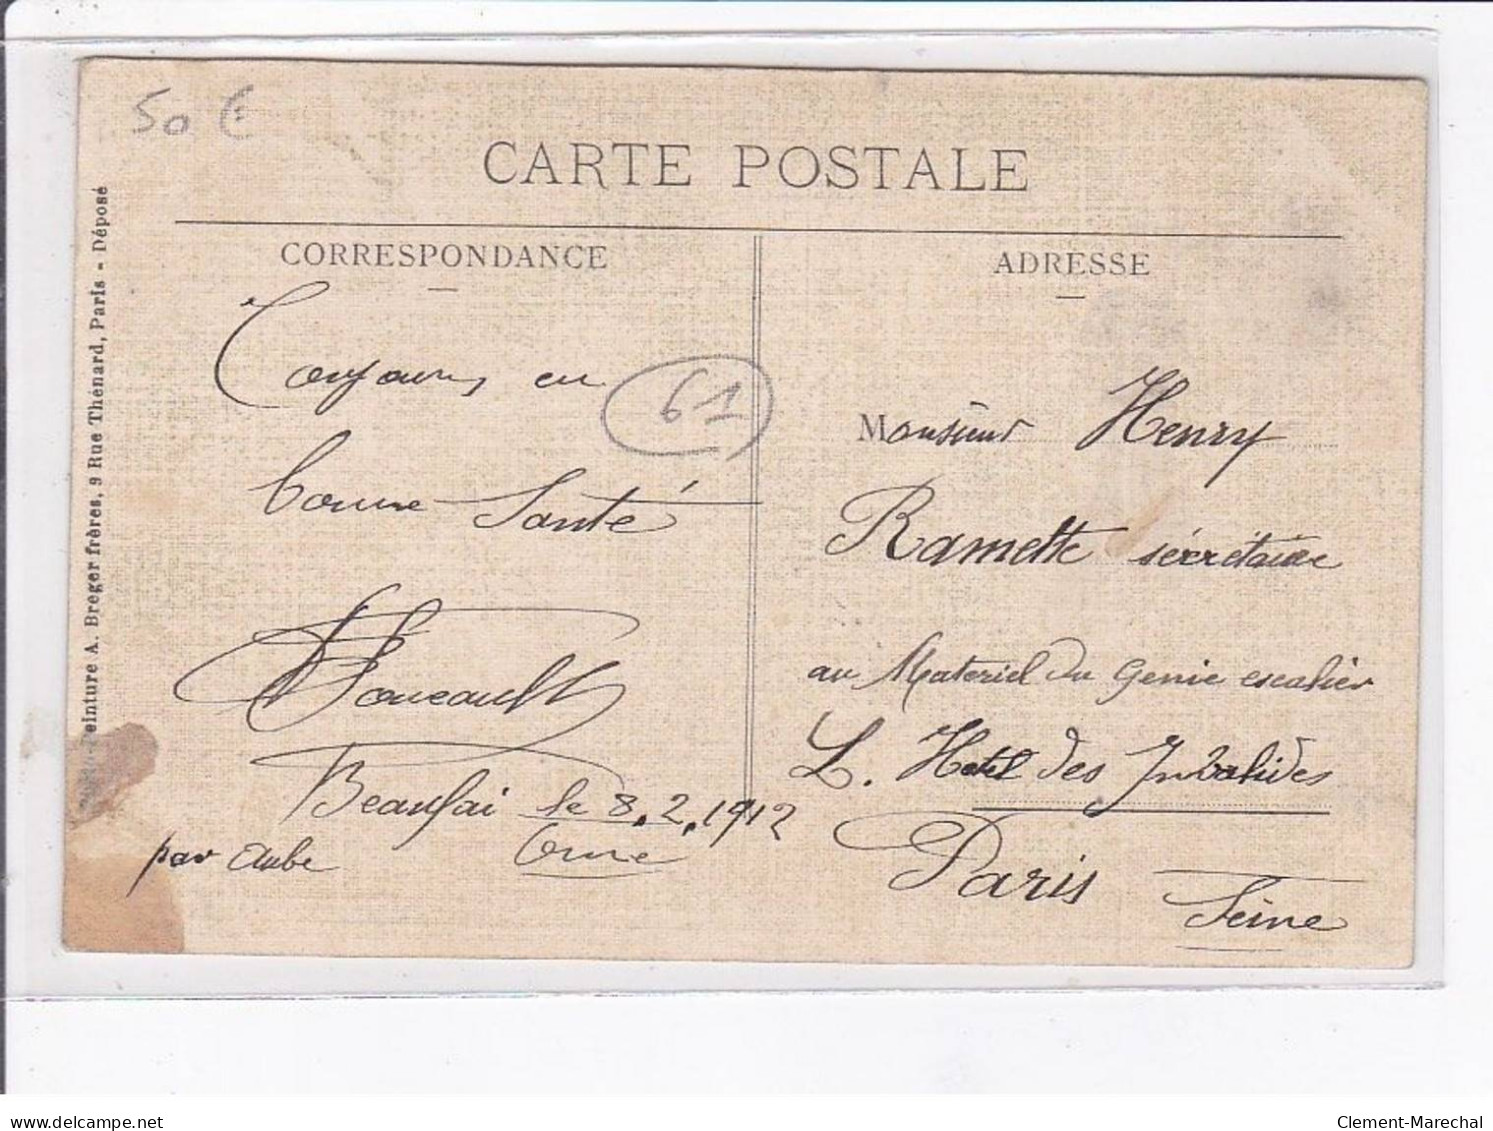 50 €
CARTE POSTALE
CORRESPONDANCE
Toujours en
bonne Santé
Foucault
Beaufai le 8.2.1912
par Aube Orne
61
ADRESSE
Monsieur Henry
Ramette sécrétaire
au Materiel du Genie escalier
L. Hotel des Invalides
Paris
Seine
Peinture A. Breger frères, 9 Rue Thénard, Paris - Déposé
www.delcampe.net
Clement-Marechal